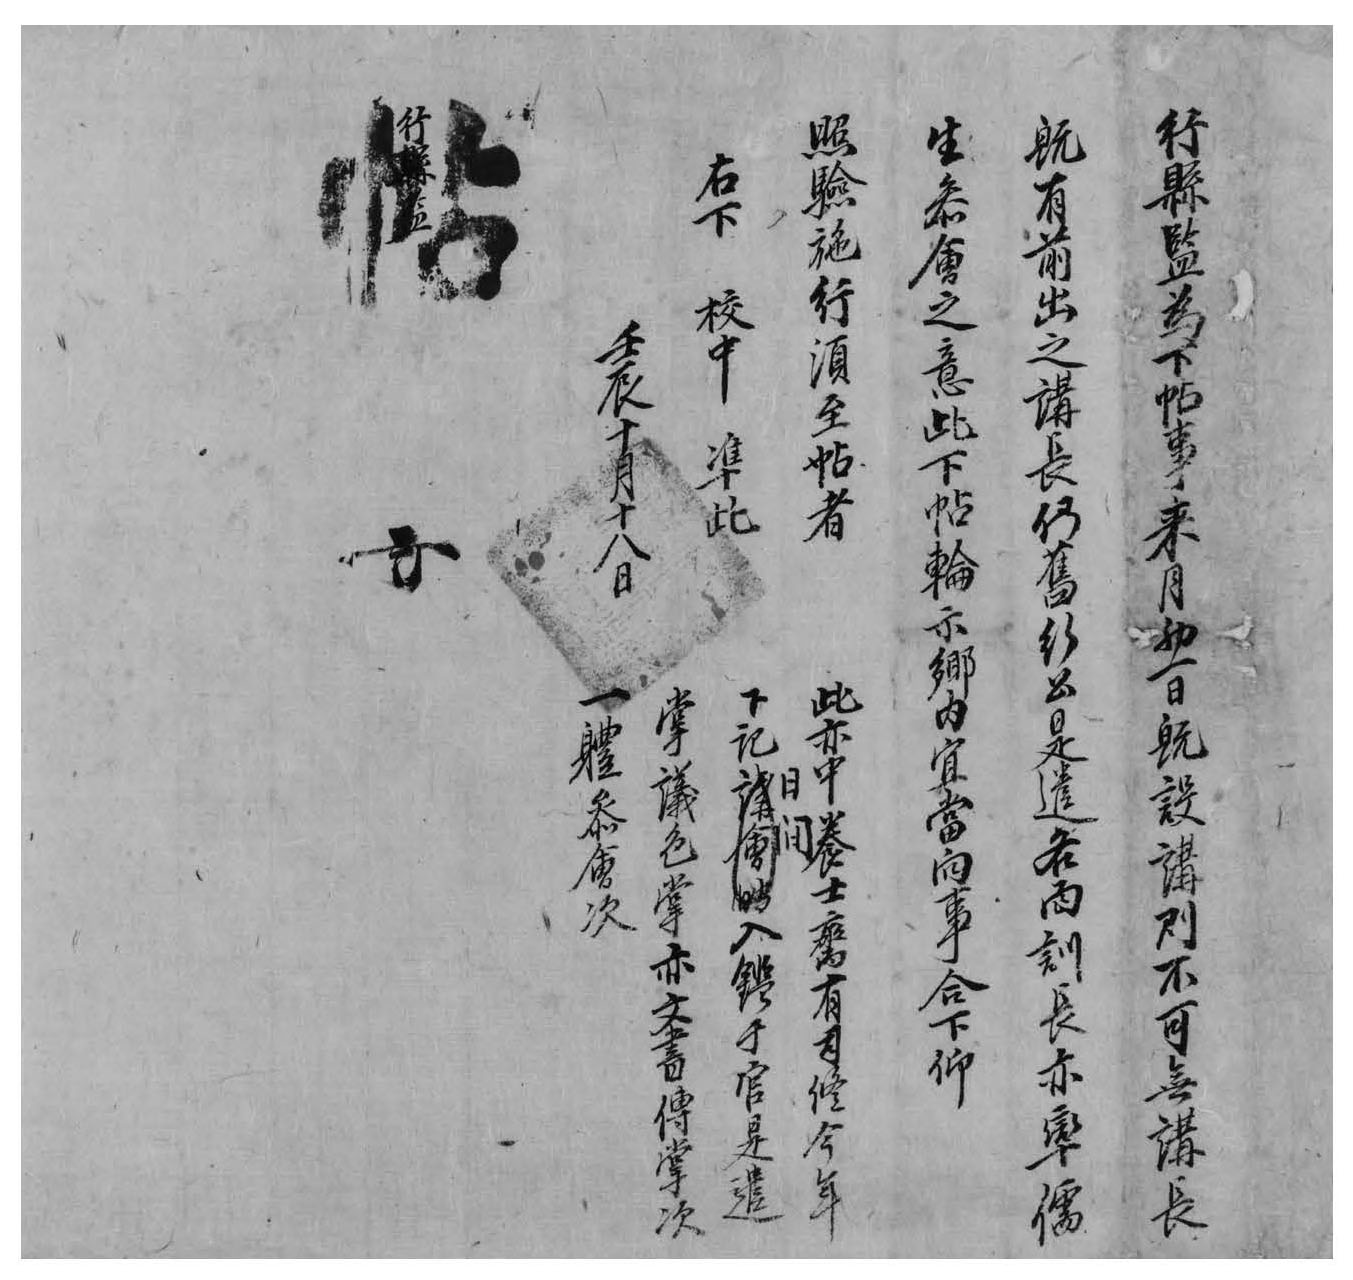 行縣監爲下帖事来月初一日旣設講則不可無講長
旣有前出之講長仍舊行公是遣各面訓長亦率儒
生叅會之意此下帖輪示鄕內宜當向事合下仰
照驗施行須至帖者
右下 校中 準此
壬辰十月十八日
行縣監
帖
此亦中養士齋有司修今年
下記講會時入鑑于官是遣
日間
掌議色掌亦文書傳掌次
一軆叅會次